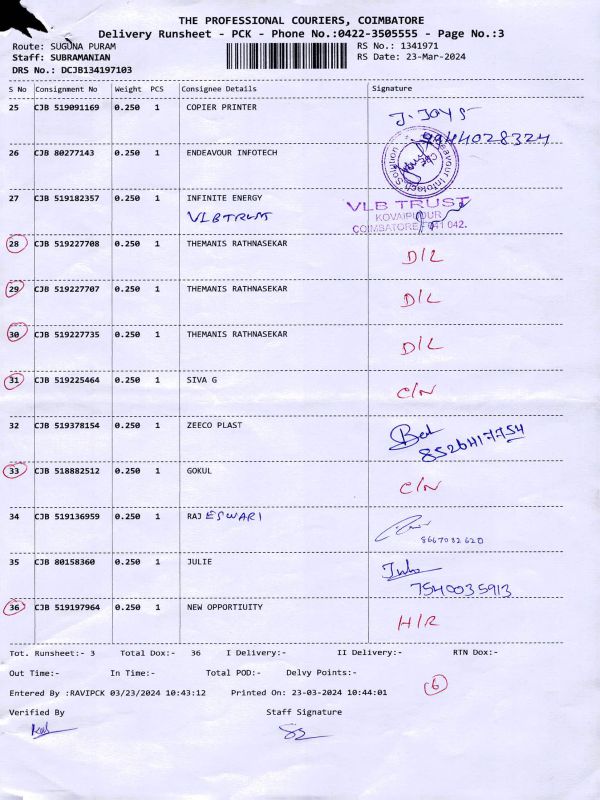 THE PROFESSIONAL COURIERS, COIMBATORE
Delivery Runsheet - PCK - Phone No.:0422-3505555 - Page No.:3
Route: SUGUNA PURAM RS No.: 1341971
Staff: SUBRAMANIAN RS Date: 23-Mar-2024
DRS No.: DCJB134197103
S No Consignment No Weight PCS Consignee Details Signature
25 CJB 519091169 0.250 1 COPIER PRINTER J. JOYS
9944028324
26 CJB 80277143 0.250 1 ENDEAVOUR INFOTECH
27 CJB 519182357 0.250 1 INFINITE ENERGY VLB TRUST
VLBTRUST KOVAIPUDUR
COIMBATORE - 641 042.
28 CJB 519227708 0.250 1 THEMANIS RATHNASEKAR D/L
29 CJB 519227707 0.250 1 THEMANIS RATHNASEKAR D/L
30 CJB 519227735 0.250 1 THEMANIS RATHNASEKAR D/L
31 CJB 519225464 0.250 1 SIVA G C/N
32 CJB 519378154 0.250 1 ZEECO PLAST
8526417754
33 CJB 518882512 0.250 1 GOKUL C/N
34 CJB 519136959 0.250 1 RAJ ESWARI
8667032620
35 CJB 80158360 0.250 1 JULIE
7540035913
36 CJB 519197964 0.250 1 NEW OPPORTIUITY H/R
Tot. Runsheet:- 3 Total Dox:- 36 I Delivery:- II Delivery:- RTN Dox:-
Out Time:- In Time:- Total POD:- Delvy Points:-
6
Entered By :RAVIPCK 03/23/2024 10:43:12 Printed On: 23-03-2024 10:44:01
Verified By Staff Signature